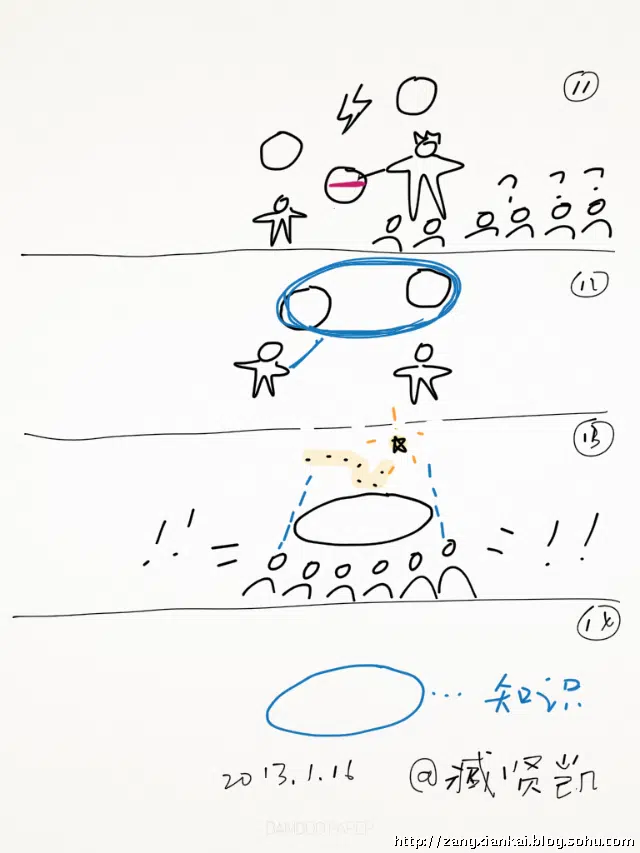 11
? ? ?
12
13
! !
! !
14
... 知识
2013.1.16 @臧贤凯
BAMBOO PAPER
http://zangxiankai.blog.sohu.com